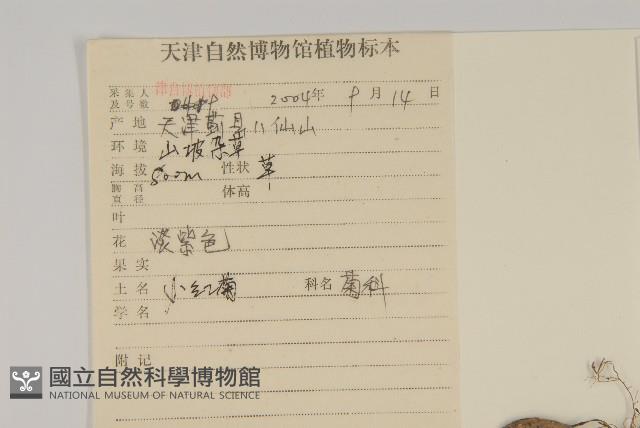 天津自然博物馆植物标本
采集人
及号数 2004年 9月 14日
产地 天津蓟县八仙山
环境 山坡杂草
海拔 800m 性状 草
胸高
直径 体高
叶
花 淡紫色
果实
土名 小红菊 科名 菊科
学名
附记
國立自然科學博物館
NATIONAL MUSEUM OF NATURAL SCIENCE